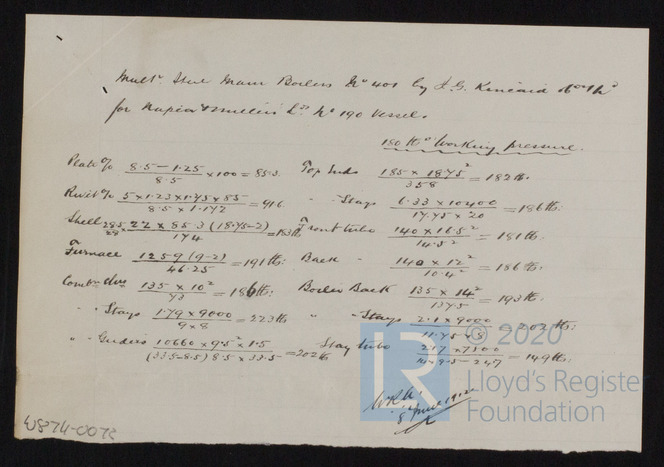 Mult. Steel Main Boilers No 401 by J. G. Kincaid & Co Ld
for Napier & Miller's Ld No 190 Vessel.
180 lbs Working pressure.
Plate % 8.5 - 1.25 / 8.5 × 100 = 85.3
Top Ends 185 × 18.75² / 358 = 182 lbs.
Rivet % 5 × 1.23 × 1.75 × 85 / 8.5 × 1.172 = 91.6
" Stays 6.33 × 10400 / 17.75 × 20 = 186 lbs:
Shell 28.5 / 28 × 22 × 85.3 (18.75-2) / 174 = 183 lbs
Front tube 140 × 16.5² / 14.5² = 181 lbs:
Furnace 1259 (9-2) / 46.25 = 191 lbs:
Back " 140 × 12² / 10.4² = 186 lbs:
Combn Chrs 135 × 10² / 73 = 186 lbs:
Boiler Back 135 × 14² / 137.5 = 193 lbs:
" " Stays 1.79 × 9000 / 9 × 8 = 223 lbs
" " Stays 2.1 × 9000 / 11.75 × 8 = 202 lbs:
" " Girders 10660 × 9.5² × 1.5 / (33.5-8.5) 8.5 × 33.5 = 202 lbs
Stay tubes 2.17 × 7500 / 14 × 9.5 - 24.7 = 149 lbs:
8 June 1912
W874-0078
© 2020
LR
Lloyd's Register
Foundation